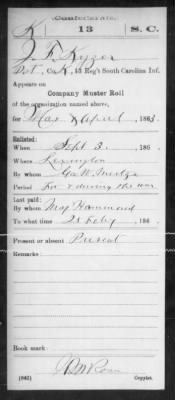 Confederate.
K 13 S. C.
J. F. Kyzer
Pvt, Co. K, 13 Reg't South Carolina Inf.
Appears on
Company Muster Roll
of the organization named above,
for Mar & April, 1863.
Enlisted:
When Sept 3, 186
Where Lexington
By whom Geo. W. Meetze
Period For & during the war
Last paid:
By whom Maj Hammond
To what time 28 Feby, 186
Present or absent Present
Remarks:
Book mark:
(642) Copyist.